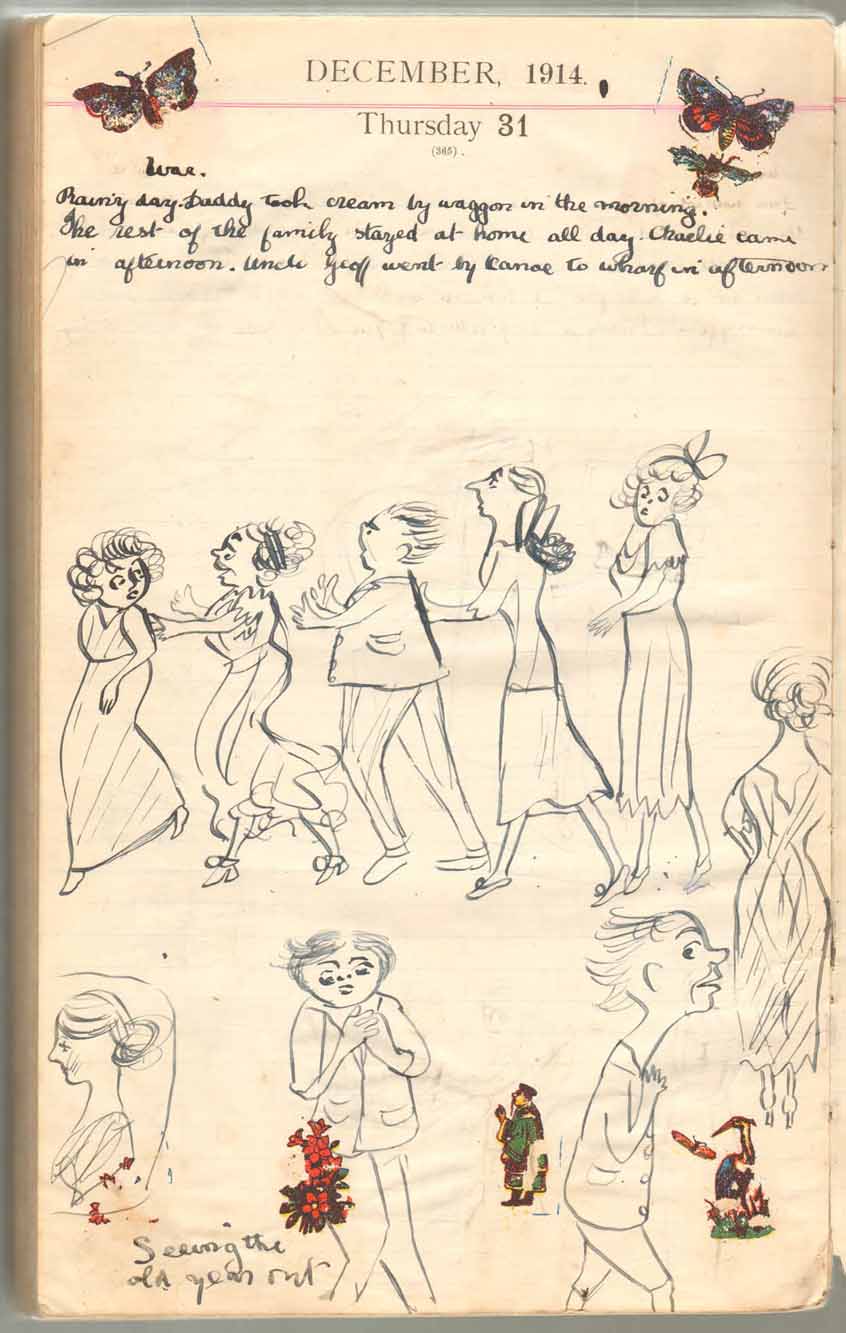 DECEMBER, 1914.
Thursday 31
(365).
War.
Rainy day. Daddy took cream by waggon in the morning.
The rest of the family stayed at home all day. Charlie came
in afternoon. Uncle Geoff went by Canoe to wharf in afternoon
Seeing the
old year out